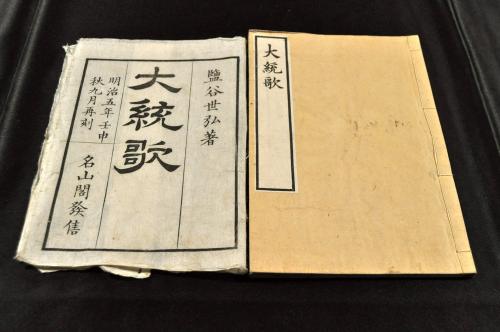 鹽谷世弘著
大統歌
明治五年壬申
秋九月再刻
名山閣發售
大統歌